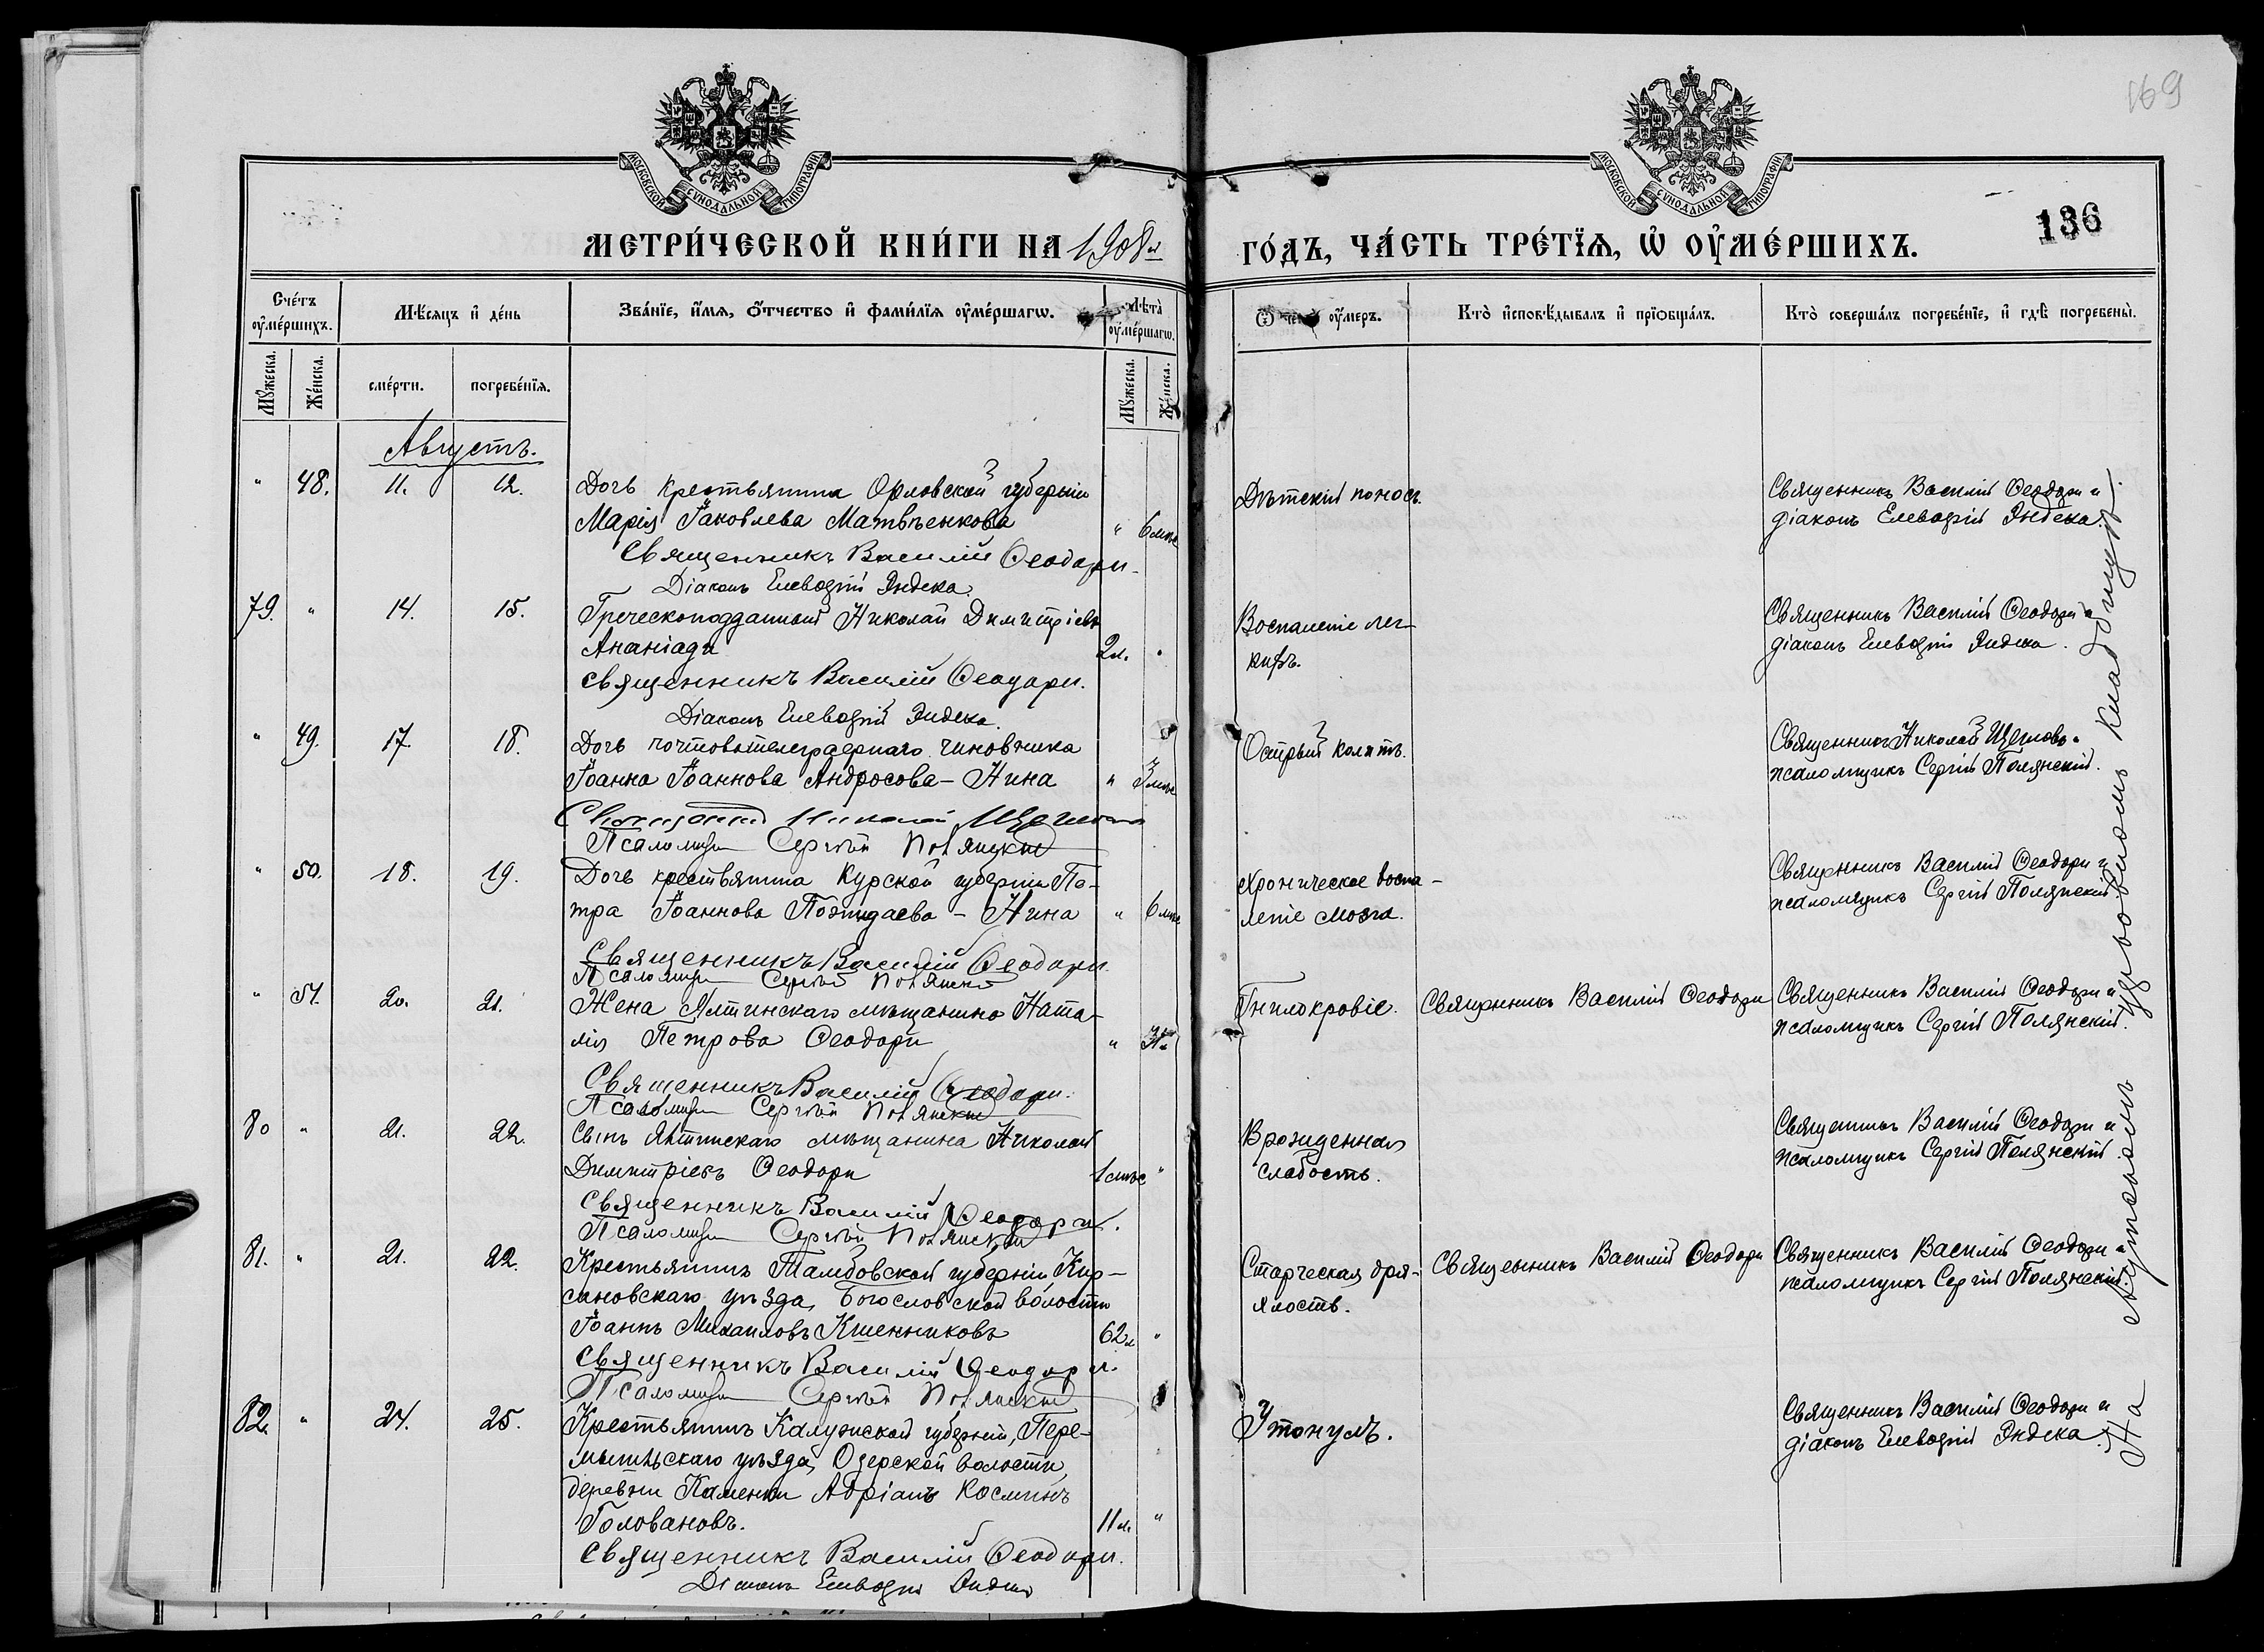 169
МОСКОВСКОЙ СѴНОДАЛЬНОЙ ТИПОГРАФІИ.
МОСКОВСКОЙ СѴНОДАЛЬНОЙ ТИПОГРАФІИ.
136
МЕТРИ́ЧЕСКОЙ КНИ́ГИ НА 1908й
ГО́ДЪ, ЧА́СТЬ ТРЕ́ТЇѦ, Ѡ ОУ҆МЕ́РШИХЪ.
Сче́тъ оу҆ме́ршихъ.
Мѣ́сѧцъ и҆ де́нь
Зва́нїе, и҆́мѧ, ѻ҆́тчество и҆ фами́лїѧ оу҆ме́ршагѡ.
Лѣ́та оу҆ме́ршагѡ.
Ѿ чегѡ̀ оу҆́меръ.
Кто̀ и҆сповѣ́дывалъ и҆ прїѻбща́лъ.
Кто̀ соверша́лъ погребе́нїе, и҆ гдѣ̀ погребены̀.
Мꙋ́жеска.
Же́нска.
сме́рти.
погребе́нїѧ.
Мꙋ́жеска.
Же́нска.
Августъ.
" 48. 11. 12. Дочь крестьянина Орловской губерніи
Марія Іаковлева Матвѣенкова " 6 мѣс
Священникъ Василій Ѳеодори
Діаконъ Елевѳерій Яндека.
Дѣтскій поносъ.
Священникъ Василій Ѳеодори и
діаконъ Елевѳерій Яндека.
79. " 14. 15. Греческоподданный Николай Димитріевъ
Ананіади 2л. "
Священникъ Василій Ѳеодори.
Діаконъ Елевѳерій Яндека.
Воспаленіе лег-
кихъ.
Священникъ Василій Ѳеодори и
діаконъ Елевѳерій Яндека.
" 49. 17. 18. Дочь почтовотелеграфнаго чиновника
Іоанна Іоаннова Андросова - Нина " 3 мѣс
Священникъ Николай Щегловъ
Псаломщикъ Сергій Полянскій
Острый колитъ.
Священникъ Николай Щегловъ и
псаломщикъ Сергій Полянскій.
" 50. 18. 19. Дочь крестьянина Курской губерніи Пе-
тра Іоаннова - Нина " 6 мѣс
Священникъ Василій Ѳеодори.
Псаломщикъ Сергій Полянскій
Хроническое воспа-
леніе мозга.
Священникъ Василій Ѳеодори и
псаломщикъ Сергій Полянскій.
" 51. 20. 21. Жена Ялтинскаго мѣщанина Ната-
лія Петрова Ѳеодори "
Священникъ Василій Ѳеодори.
Псаломщикъ Сергій Полянскій
Гнилокровіе.
Священникъ Василій Ѳеодори
Священникъ Василій Ѳеодори и
псаломщикъ Сергій Полянскій.
80 " 21. 22. Сынъ Ялтинскаго мѣщанина Николай
Димитріевъ Ѳеодори 1 мѣс "
Священникъ Василій Ѳеодори.
Псаломщикъ Сергій Полянскій
Врожденная
слабость.
Священникъ Василій Ѳеодори и
псаломщикъ Сергій Полянскій.
81. " 21. 22. Крестьянинъ Тамбовской губерніи, Кир-
сановскаго уѣзда, Богословской волости
Іоаннъ Михаиловъ Кшенниковъ 62л "
Священникъ Василій Ѳеодори.
Псаломщикъ Сергій Полянскій
Старческая дря-
хлость.
Священникъ Василій Ѳеодори
Священникъ Василій Ѳеодори и
псаломщикъ Сергій Полянскій.
82. " 24. 25. Крестьянинъ Калужской губерніи, Пере-
мышльскаго уѣзда, Озерской волости,
деревни Каменки Адріанъ Косминъ
Головановъ. 11л. "
Священникъ Василій Ѳеодори.
Діаконъ Елевѳерій Яндека
Утонулъ.
Священникъ Василій Ѳеодори и
діаконъ Елевѳерій Яндека.
На Аутскомъ кладбищѣ.